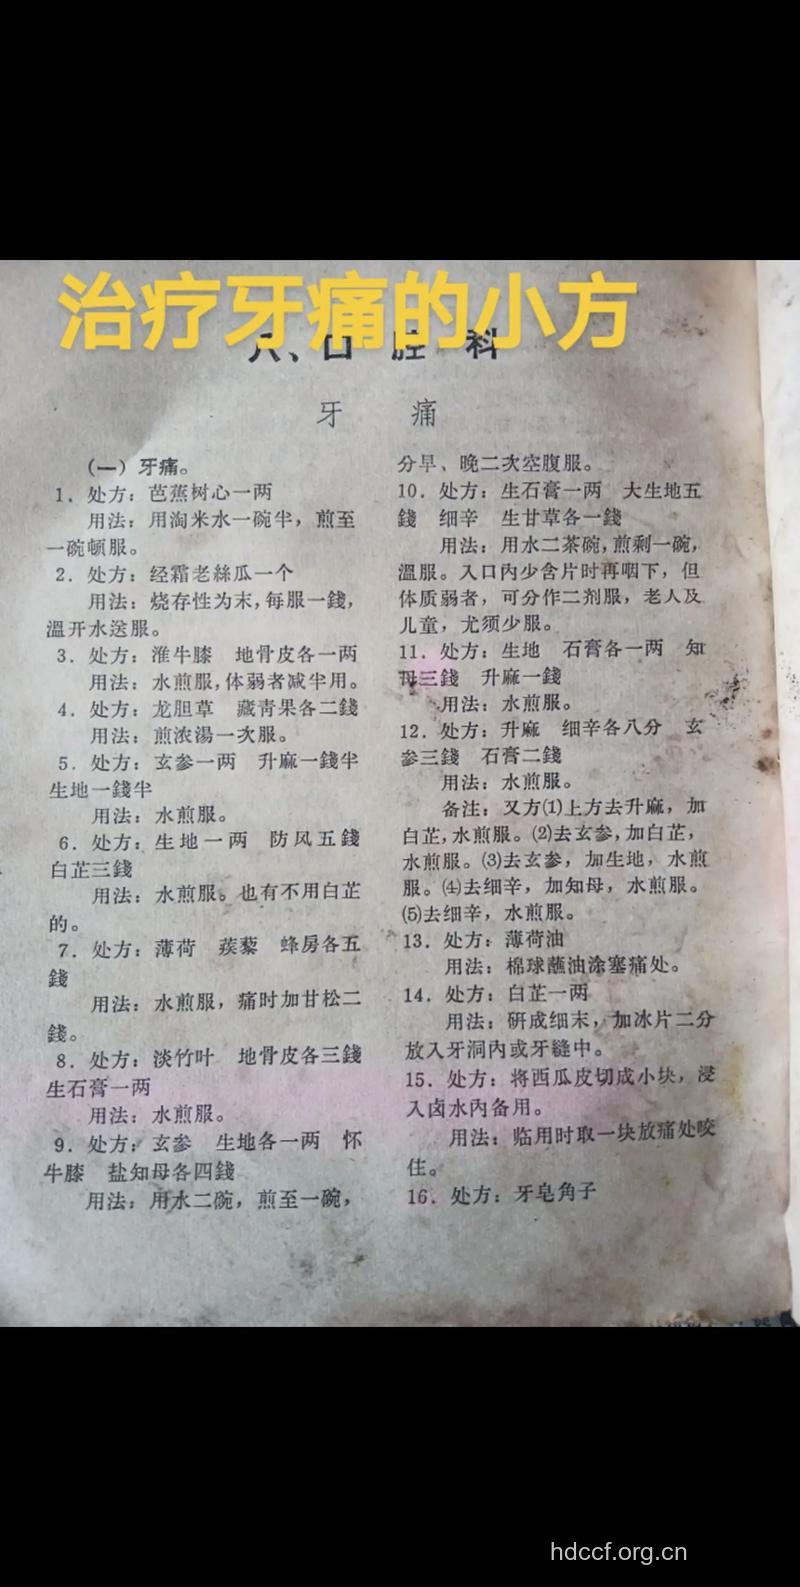 治疗牙痛的小方
八、口 腔 科
牙 痛
（一）牙痛。
1．处方：芭蕉树心一两
用法：用淘米水一碗半，煎至
一碗顿服。
2．处方：经霜老絲瓜一个
用法：烧存性为末，每服一錢，
溫开水送服。
3．处方：淮牛膝 地骨皮各一两
用法：水煎服，体弱者减半用。
4．处方：龙胆草 藏青果各二錢
用法：煎浓湯一次服。
5．处方：玄参一两 升麻一錢半
生地一錢半
用法：水煎服。
6．处方：生地一两 防风五錢
白芷三錢
用法：水煎服。也有不用白芷
的。
7．处方：薄荷 蒺藜 蜂房各五
錢
用法：水煎服，痛时加甘松二
錢。
8．处方：淡竹叶 地骨皮各三錢
生石膏一两
用法：水煎服。
9．处方：玄参 生地各一两 怀
牛膝 盐知母各四錢
用法：用水二碗，煎至一碗，
分早、晚二次空腹服。
10．处方：生石膏一两 大生地五
錢 细辛 生甘草各一錢
用法：用水二茶碗，煎剩一碗，
溫服。入口內少含片时再咽下，但
体质弱者，可分作二剂服，老人及
儿童，尤须少服。
11．处方：生地 石膏各一两 知
母三錢 升麻一錢
用法：水煎服。
12．处方：升麻 细辛各八分 玄
参三錢 石膏二錢
用法：水煎服。
备注：又方⑴上方去升麻，加
白芷，水煎服。⑵去玄参，加白芷，
水煎服。⑶去玄参，加生地，水煎
服。⑷去细辛，加知母，水煎服。
⑸去细辛，水煎服。
13．处方：薄荷油
用法：棉球蘸油涂塞痛处。
14．处方：白芷一两
用法：研成细末，加冰片二分
放入牙洞內或牙縫中。
15．处方：将西瓜皮切成小块，浸
入卤水內备用。
用法：临用时取一块放痛处咬
住。
16．处方：牙皂角子
hdccf.org.cn